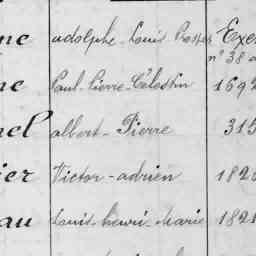 ne adolphe-Louis Prosper Exe
n° 38
ne Paul-Pierre-Célestin 169
nel albert-Pierre 315
ier Victor-adrien 182
au Louis-henri-Marie 182